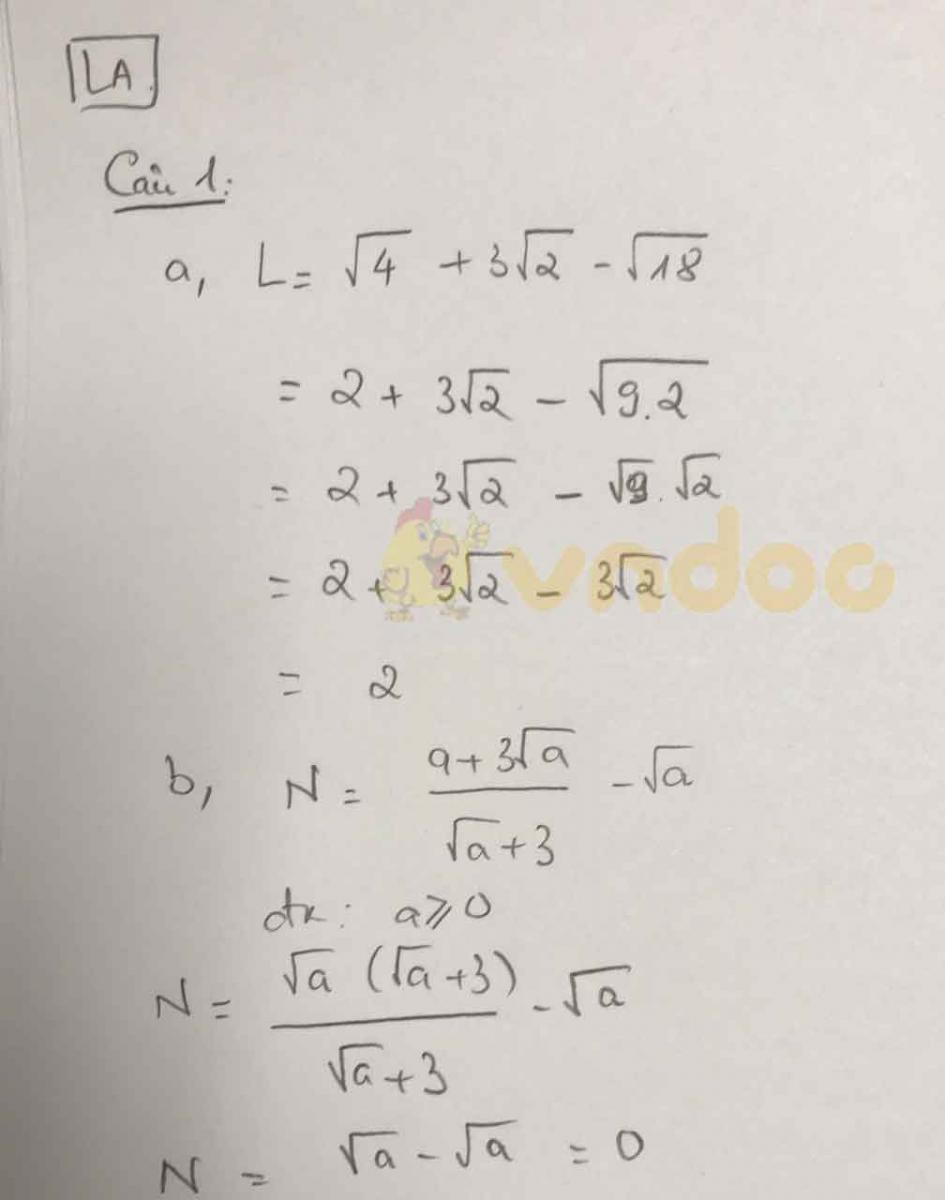 LA
Câu 1:
a, L = √4 + 3√2 - √18
= 2 + 3√2 - √9.2
= 2 + 3√2 - √9.√2
= 2 + 3√2 - 3√2
vndoc
= 2
b, N = (a+3√a)/(√a+3) - √a
đk: a ⩾ 0
N = (√a (√a+3))/(√a+3) - √a
N = √a - √a = 0